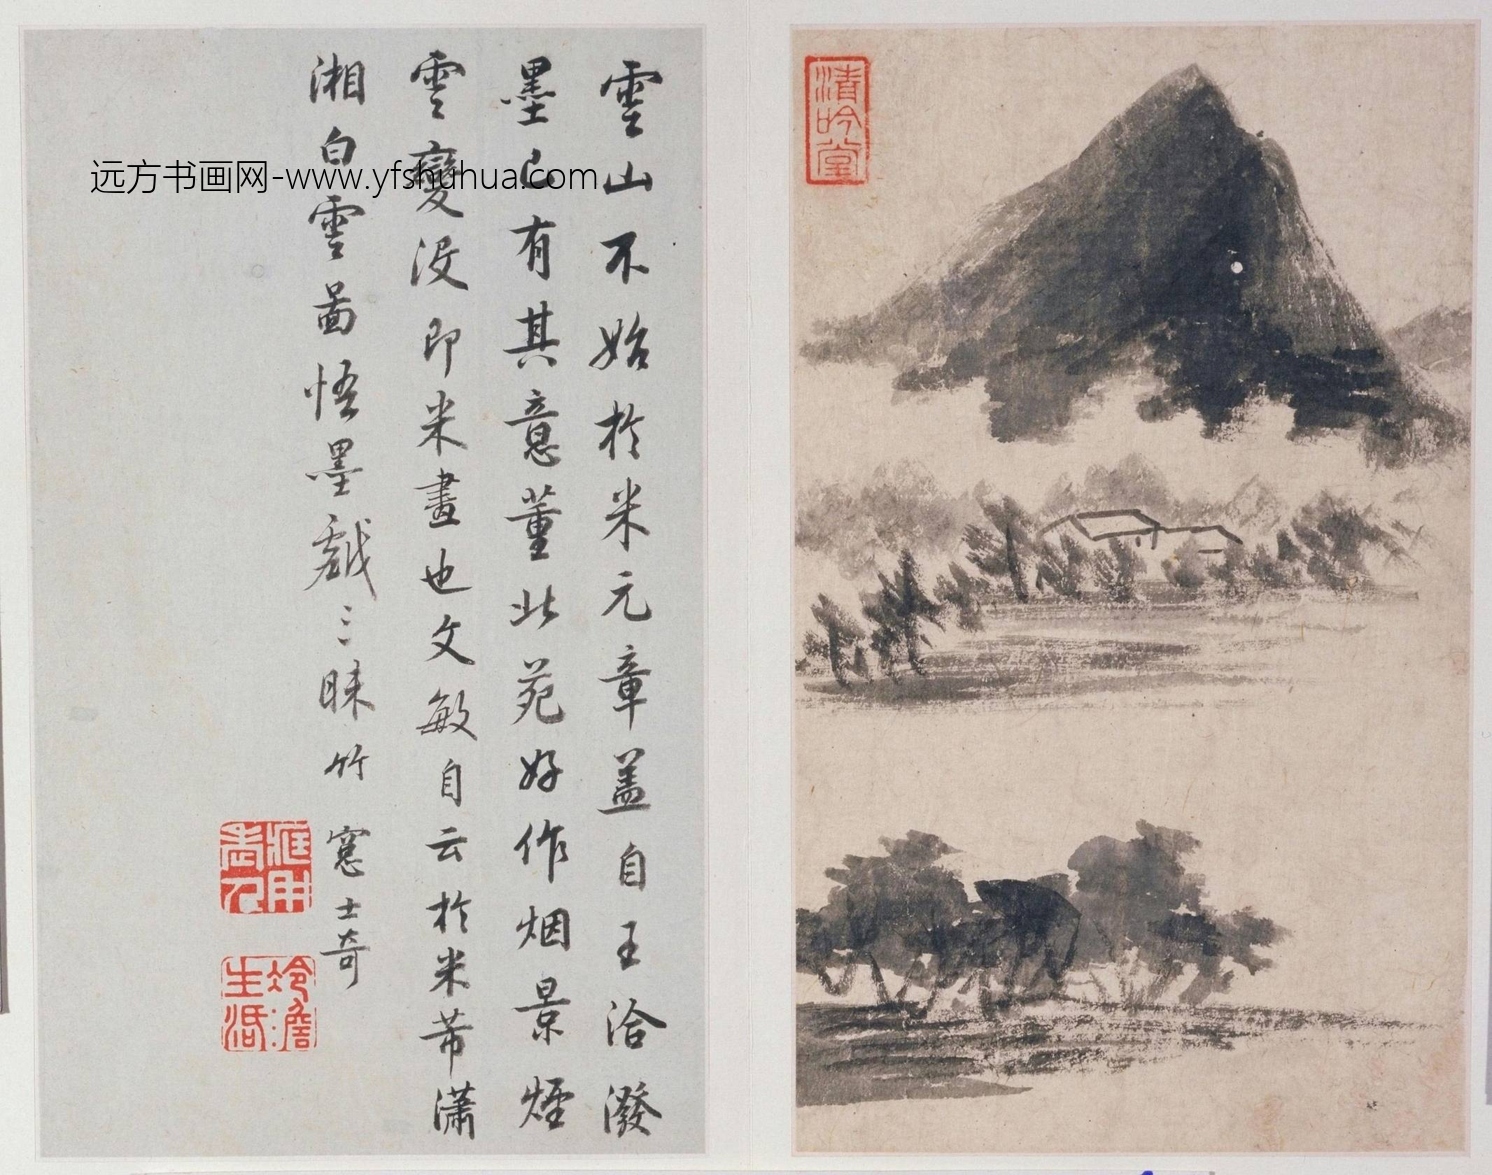 清吟堂
雲山不始於米元章盖自王洽潑
墨已有其意董北苑好作烟景煙
雲變没即米畫也文敏自云於米芾瀟
湘白雲啚悟墨戯三昧竹窻士奇
冷澹生活
远方书画网-www.yfshuhua.com